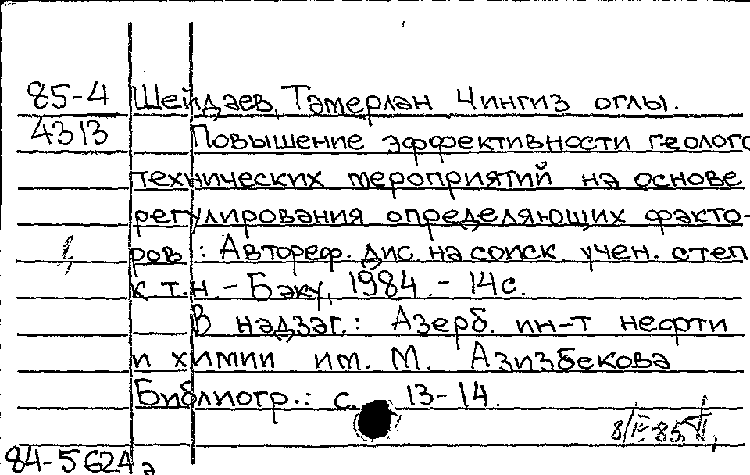 85-4 Шейдаев, Тамерлан Чингиз оглы.
4313 Повышение эффективности геолого
технических мероприятий на основе
регулирования определяющих факто-
ров : Автореф. дис. на соиск. учен. степ
к. т.н. - Баку, 1984. - 14с.
В надзаг.: Азерб. ин-т нефти
и химии им. М. Азизбекова
Библиогр.: с. 13-14.
84-5624а